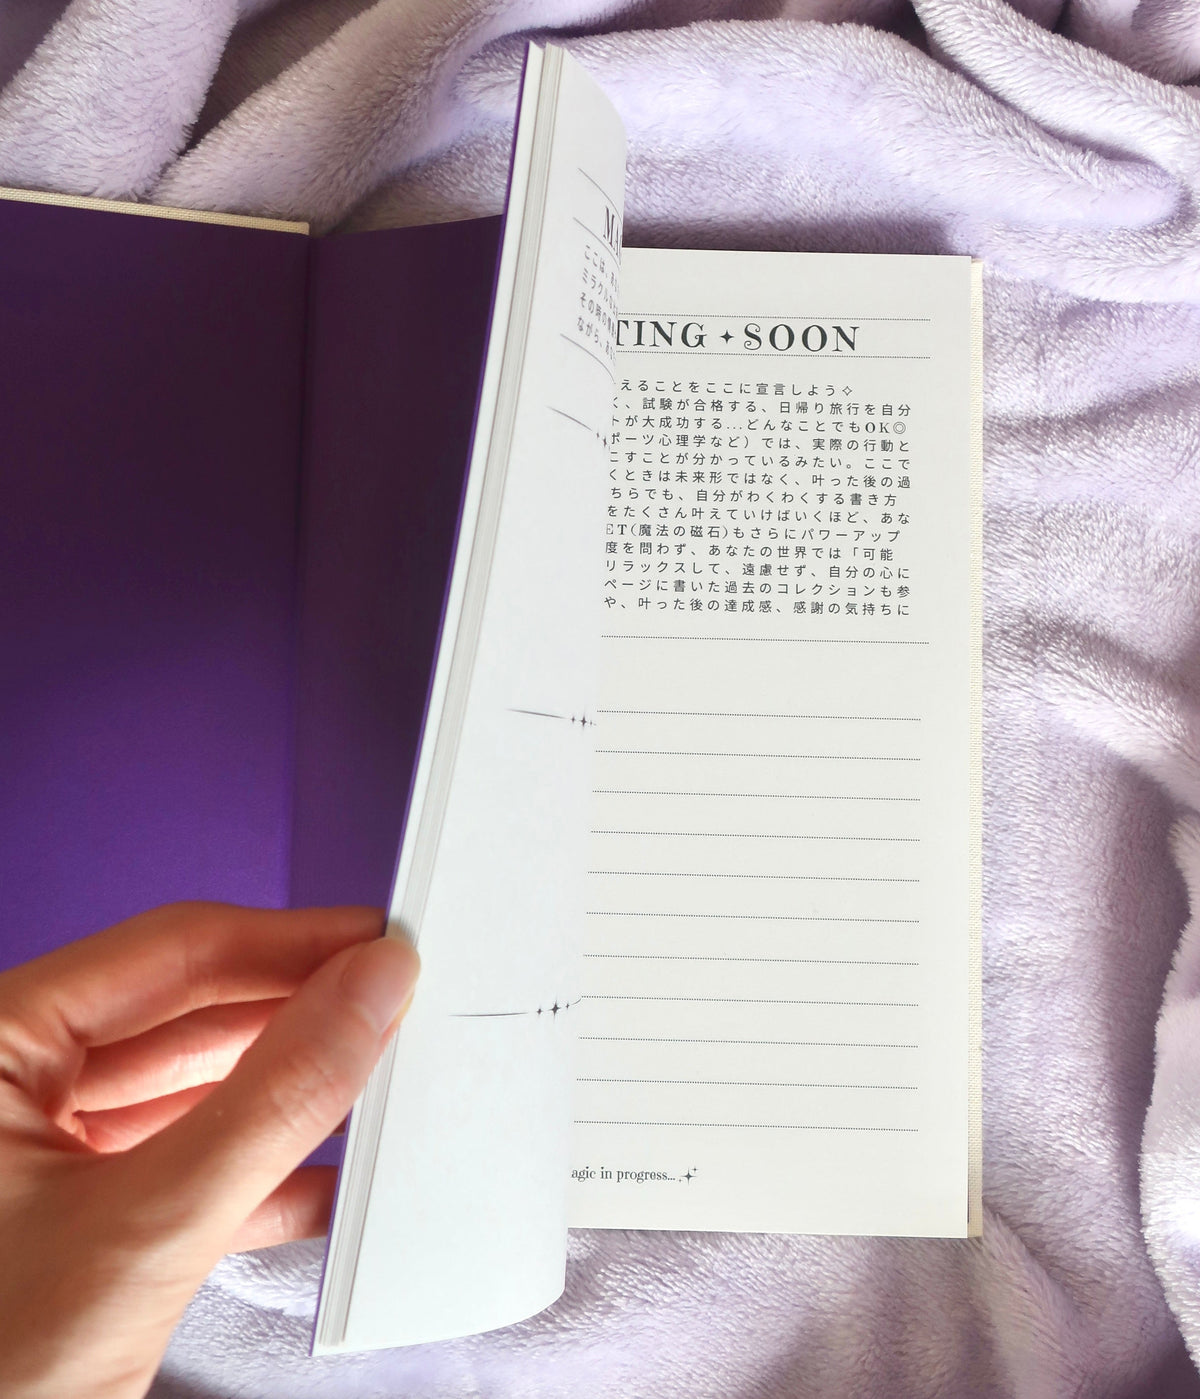 MA
ここは、
ミラクル
その時の
ながら、
TING ✦ SOON
えることをここに宣言しよう✧
く、試験が合格する、日帰り旅行を自分
トが大成功する...どんなことでもOK◎
ポーツ心理学など）では、実際の行動と
こすことが分かっているみたい。ここで
くときは未来形ではなく、叶った後の過
ちらでも、自分がわくわくする書き方
をたくさん叶えていけばいくほど、あな
ET(魔法の磁石)もさらにパワーアップ
度を問わず、あなたの世界では「可能
リラックスして、遠慮せず、自分の心に
ページに書いた過去のコレクションも参
や、叶った後の達成感、感謝の気持ちに
agic in progress...